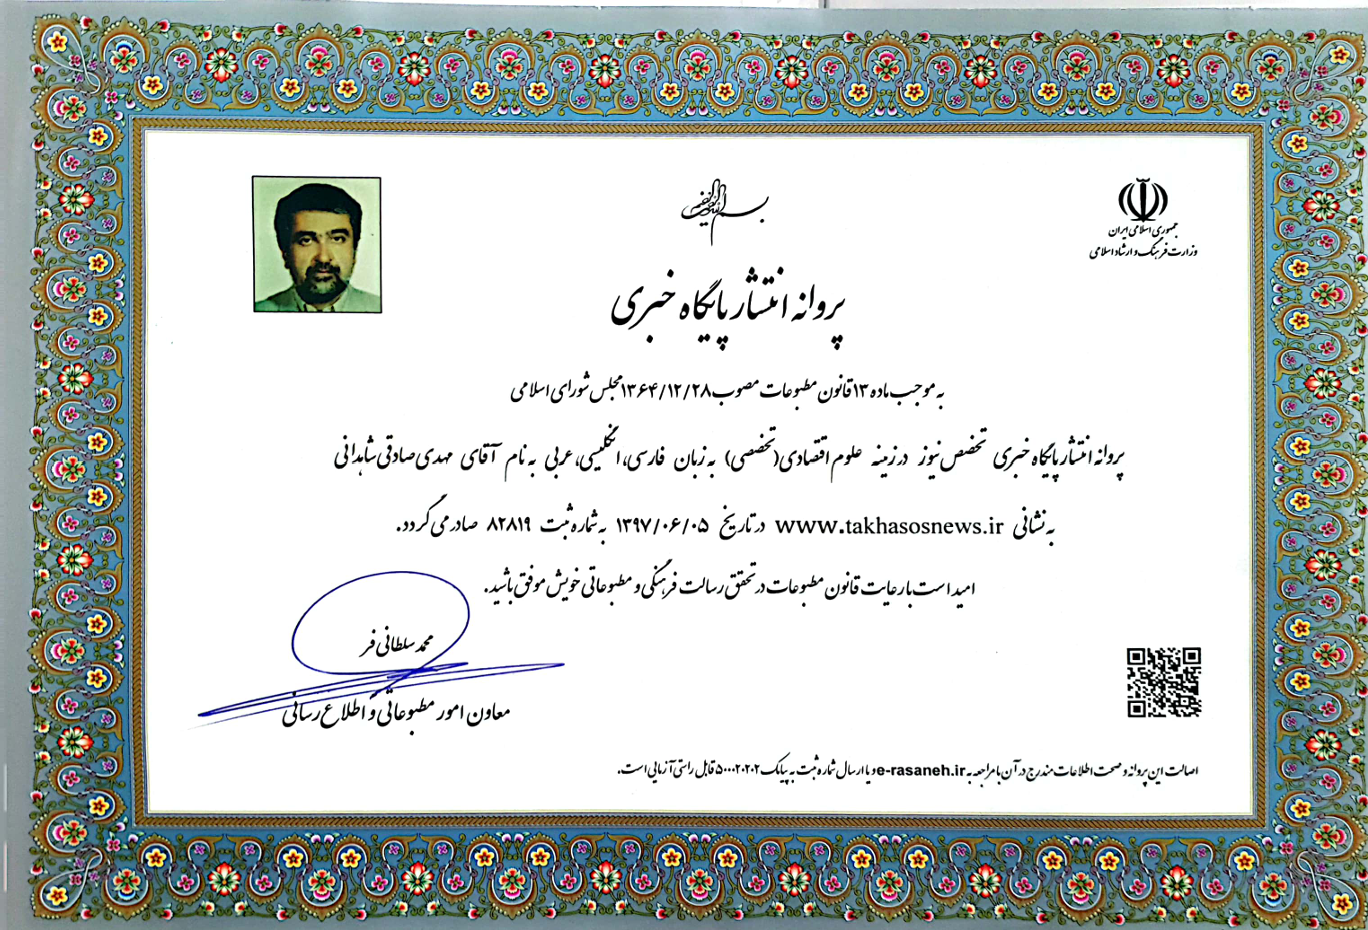 بسم الله الرحمن الرحیم
جمهوری اسلامی ایران
وزارت فرهنگ و ارشاد اسلامی
پروانه انتشار پایگاه خبری
به موجب ماده ۱۳ قانون مطبوعات مصوب ۱۳۶۴/۱۲/۲۸ مجلس شورای اسلامی
پروانه انتشار پایگاه خبری تخصص نیوز در زمینه علوم اقتصادی(تخصصی) به زبان فارسی، انگلیسی، عربی به نام آقای مهدی صادقی شاهدانی
به نشانی www.takhasosnews.ir در تاریخ ۱۳۹۷/۰۶/۰۵ به شماره ثبت ۸۲۸۱۹ صادر می گردد.
امید است با رعایت قانون مطبوعات در تحقق رسالت فرهنگی و مطبوعاتی خویش موفق باشید.
محمد سلطانی فر
معاون امور مطبوعاتی و اطلاع رسانی
اصالت این پروانه و صحت اطلاعات مندرج در آن با مراجعه به e-rasaneh.ir و یا ارسال شماره ثبت به پیامک ۵۰۰۰۲۰۲۰۲ قابل راستی آزمایی است.